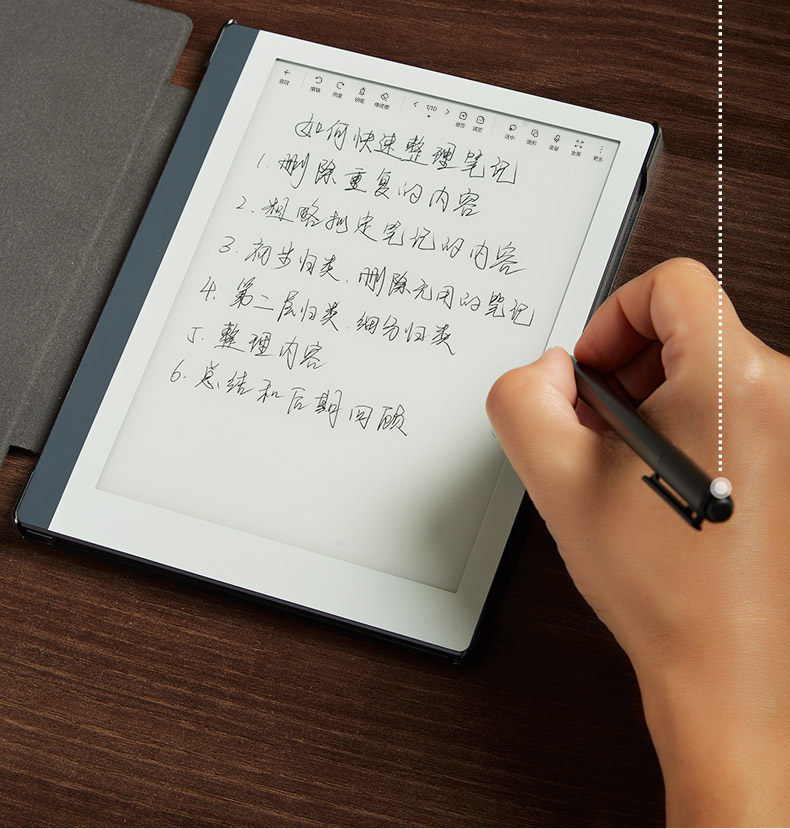 返回 撤销 恢复 钢笔 橡皮擦 1/10 翻页 减页 选中 图形 录音 全屏 更多
如何快速整理笔记
1. 删除重复的内容
2. 粗略拟定笔记的内容
3. 初步归类,删除无用的笔记
4. 第二层归类.细分归类
5. 整理内容
6. 总结和后期回顾